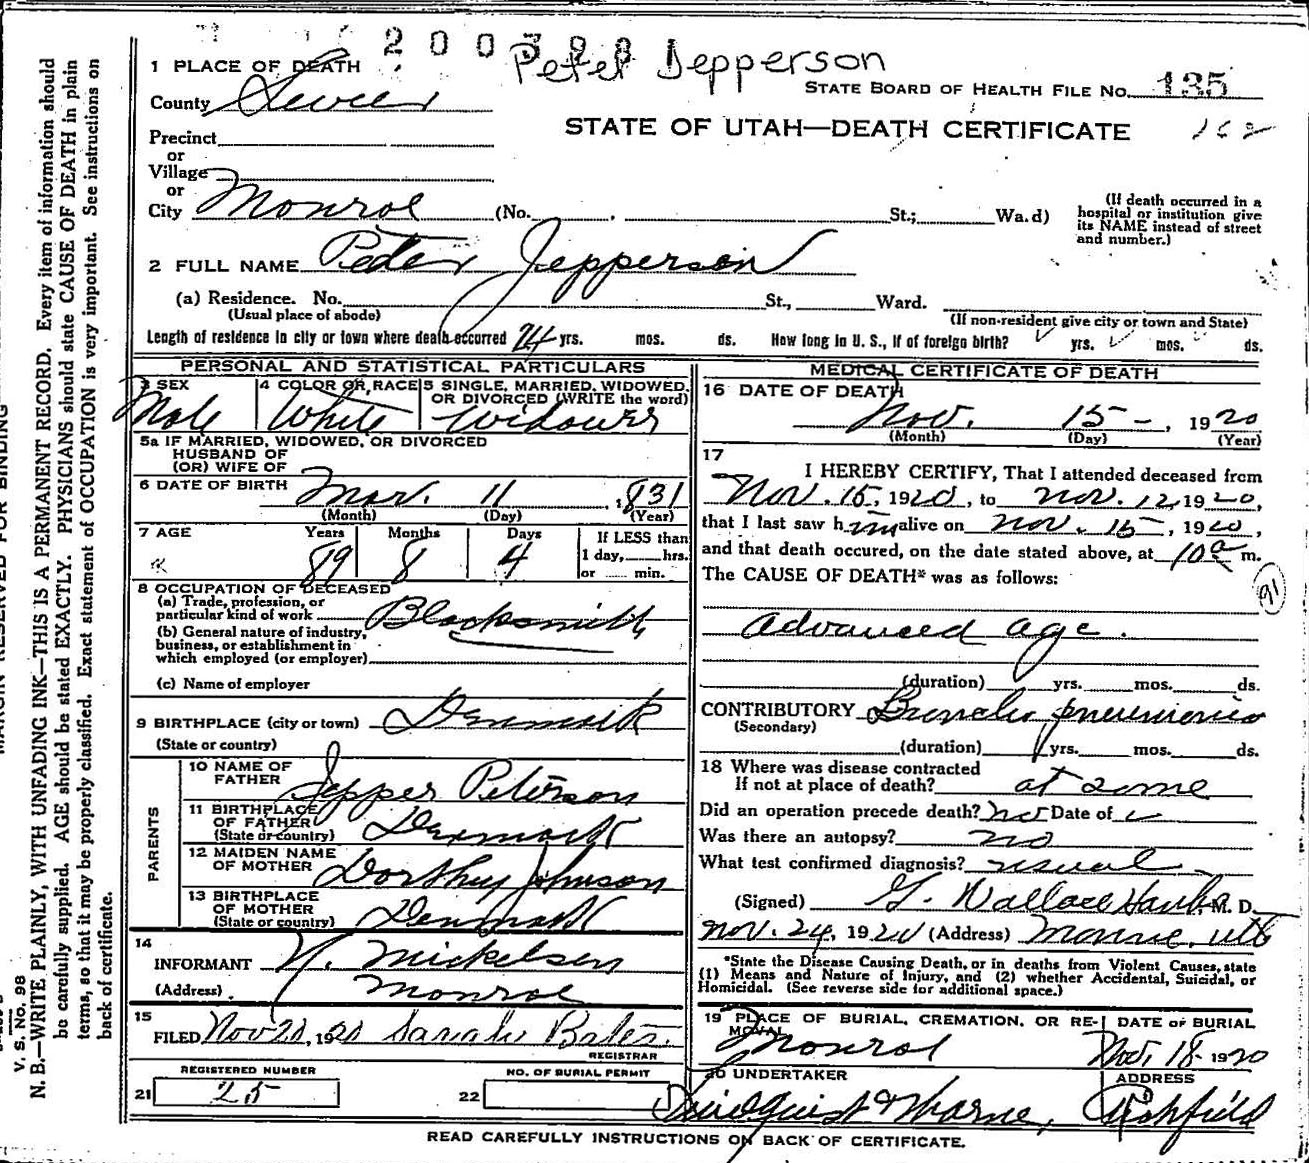 2003881
Peter Jepperson
1 PLACE OF DEATH
STATE BOARD OF HEALTH FILE No. 135
County Sevier
STATE OF UTAH—DEATH CERTIFICATE 162
Precinct
or
Village
or
City Monroe (No. , St.; Wa.d)
(If death occurred in a hospital or institution give its NAME instead of street and number.)
2 FULL NAME Peter Jepperson
(a) Residence. No. St., Ward.
(Usual place of abode) (If non-resident give city or town and State)
Length of residence in city or town where death occurred 24 yrs. mos. ds. How long in U. S., if of foreign birth? yrs. mos. ds.
PERSONAL AND STATISTICAL PARTICULARS
3 SEX Male
4 COLOR OR RACE White
5 SINGLE, MARRIED, WIDOWED, OR DIVORCED (WRITE the word) Widower
5a IF MARRIED, WIDOWED, OR DIVORCED
HUSBAND OF
(OR) WIFE OF
6 DATE OF BIRTH Mar. 11, 1831
(Month) (Day) (Year)
7 AGE Years 89 Months 8 Days 4
If LESS than
1 day, hrs.
or min.
8 OCCUPATION OF DECEASED
(a) Trade, profession, or
particular kind of work Blacksmith
(b) General nature of industry,
business, or establishment in
which employed (or employer)
(c) Name of employer
9 BIRTHPLACE (city or town) Denmark
(State or country)
PARENTS
10 NAME OF FATHER Jepper Peterson
11 BIRTHPLACE OF FATHER (State or country) Denmark
12 MAIDEN NAME OF MOTHER Dorthy Johnson
13 BIRTHPLACE OF MOTHER (State or country) Denmark
14
INFORMANT N. Mickelsen
(Address) Monroe
15
FILED Nov 20, 1920 Sarah Bates
REGISTRAR
REGISTERED NUMBER
21 25
NO. OF BURIAL PERMIT
22
MEDICAL CERTIFICATE OF DEATH
16 DATE OF DEATH
Nov. 15-, 1920
(Month) (Day) (Year)
17
I HEREBY CERTIFY, That I attended deceased from
Nov. 15, 1920, to Nov. 12, 1920,
that I last saw him alive on Nov. 15, 1920,
and that death occured, on the date stated above, at 10 a m.
The CAUSE OF DEATH* was as follows:
91
Advanced age.
(duration) yrs. mos. ds.
CONTRIBUTORY Broncho pneumonia
(Secondary)
(duration) yrs. mos. ds.
18 Where was disease contracted
If not at place of death? at some
Did an operation precede death? no Date of
Was there an autopsy? no
What test confirmed diagnosis? usual
(Signed) G. Wallace M. D.
Nov. 24, 1920 (Address) Monroe, Utah
*State the Disease Causing Death, or in deaths from Violent Causes, state
(1) Means and Nature of Injury, and (2) whether Accidental, Suicidal, or
Homicidal. (See reverse side for additional space.)
19 PLACE OF BURIAL, CREMATION, OR RE-
MOVAL Monroe
DATE OF BURIAL
Nov. 18- 1920
20 UNDERTAKER
ADDRESS
Richfield
READ CAREFULLY INSTRUCTIONS ON BACK OF CERTIFICATE.
MARGIN RESERVED FOR BINDING
V. S. No. 98
N. B.—WRITE PLAINLY, WITH UNFADING INK—THIS IS A PERMANENT RECORD. Every item of information should
be carefully supplied. AGE should be stated EXACTLY. PHYSICIANS should state CAUSE OF DEATH in plain
terms, so that it may be properly classified. Exact statement of OCCUPATION is very important. See instructions on
back of certificate.